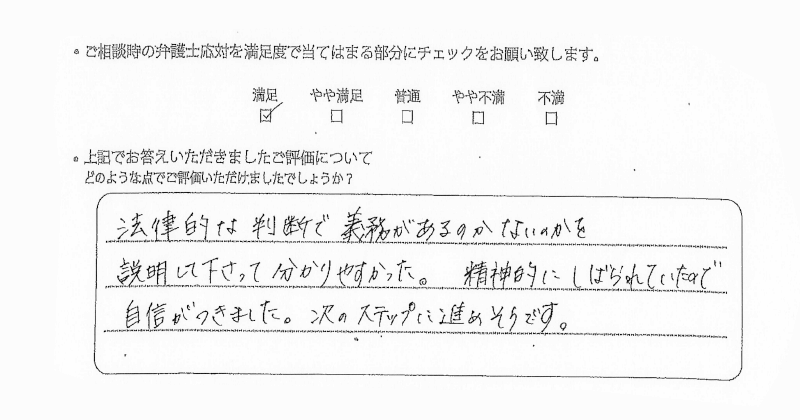 。ご相談時の弁護士応対を満足度で当てはまる部分にチェックをお願い致します。
満足 やや満足 普通 やや不満 不満
☑ □ □ □ □
。上記でお答えいただきましたご評価について
どのような点でご評価いただけましたでしょうか?
法律的な判断で義務があるのかないのかを
説明して下さって分かりやすかった。 精神的にしばられていたので
自信がつきました。次のステップに進めそうです。